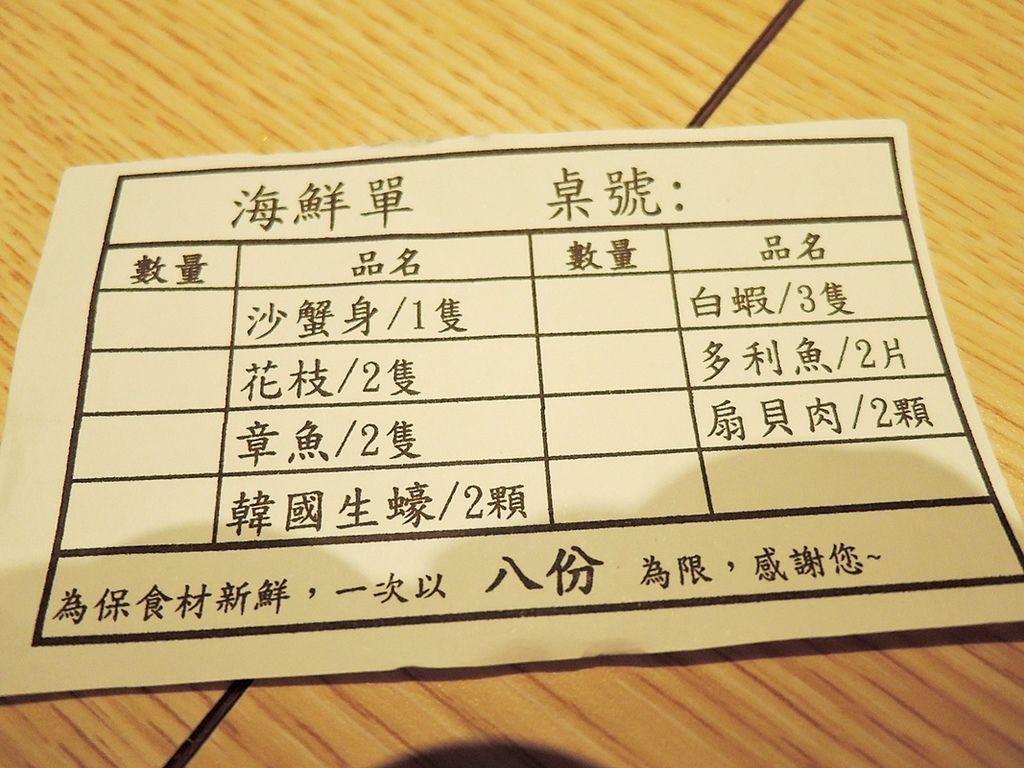 海鮮單 桌號:
數量 品名 數量 品名
沙蟹身/1隻 白蝦/3隻
花枝/2隻 多利魚/2片
章魚/2隻 扇貝肉/2顆
韓國生蠔/2顆
為保食材新鮮，一次以 八份 為限，感謝您~